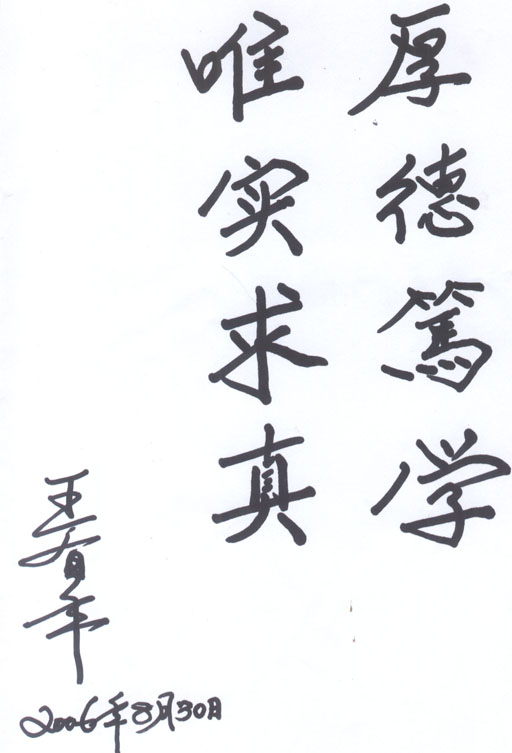 厚德篤学
唯实求真
王春年
2006年8月30日